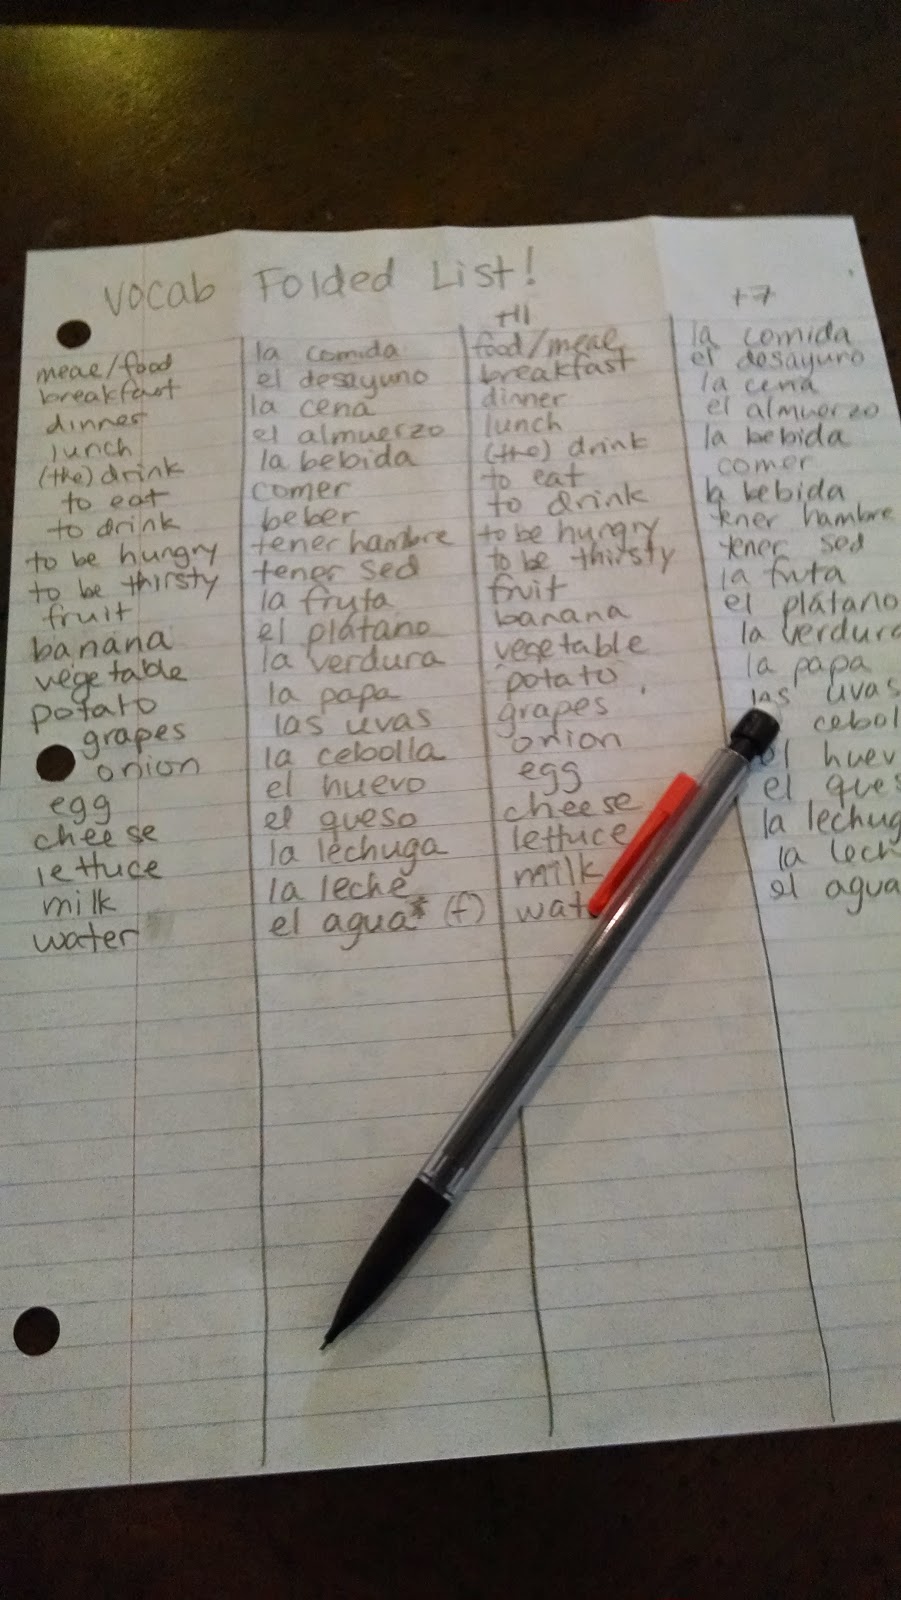 Vocab Folded List!
+11 +7
meal/food la comida food/meal la comida
breakfast el desayuno breakfast el desayuno
dinner la cena dinner la cena
lunch el almuerzo lunch el almuerzo
(the) drink la bebida (the) drink la bebida
to eat comer to eat comer
to drink beber to drink la bebida
to be hungry tener hambre to be hungry tener hambre
to be thirsty tener sed to be thirsty tener sed
fruit la fruta fruit la fruta
banana el plátano banana el plátano
vegetable la verdura vegetable la verdura
potato la papa potato la papa
grapes las uvas grapes las uvas
onion la cebolla onion cebol
egg el huevo egg el huev
cheese el queso cheese el ques
lettuce la lechuga lettuce la lechug
milk la leche milk la lech
water el agua* (f) wat el agua